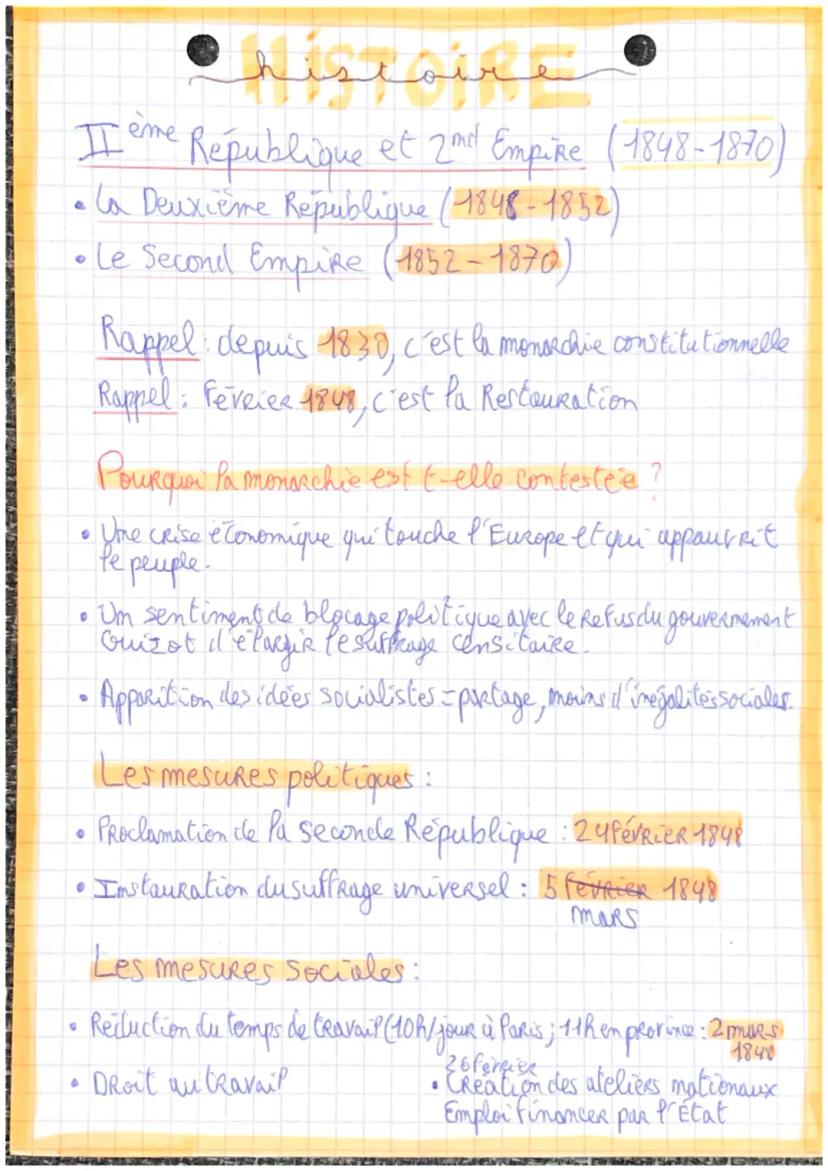 HISTOIRE
histoire
IIème République et 2nd Empire (1848-1870)
• La Deuxième République (1848-1852)
• Le Second Empire (1852-1870)
Rappel : depuis 1830, c'est la monarchie constitutionnelle
Rappel : Février 1848, c'est la Restauration
Pourquoi la monarchie est t-elle contestée ?
• Une crise économique qui touche l'Europe et qui appauvrit
le peuple.
• Un sentiment de blocage politique avec le refus du gouvernement
Guizot d'élargir le suffrage censitaire.
• Apparition des idées socialistes = partage, moins d'inégalités sociales.
Les mesures politiques :
• Proclamation de la seconde République : 24 Février 1848
• Instauration du suffrage universel : 5 février 1848
mars
Les mesures sociales :
• Réduction du temps de travail (10h/jour à Paris ; 11h en province : 2 mars
1848
• Droit au travail
26 février
• Création des ateliers nationaux
Emploi Financer par l'État